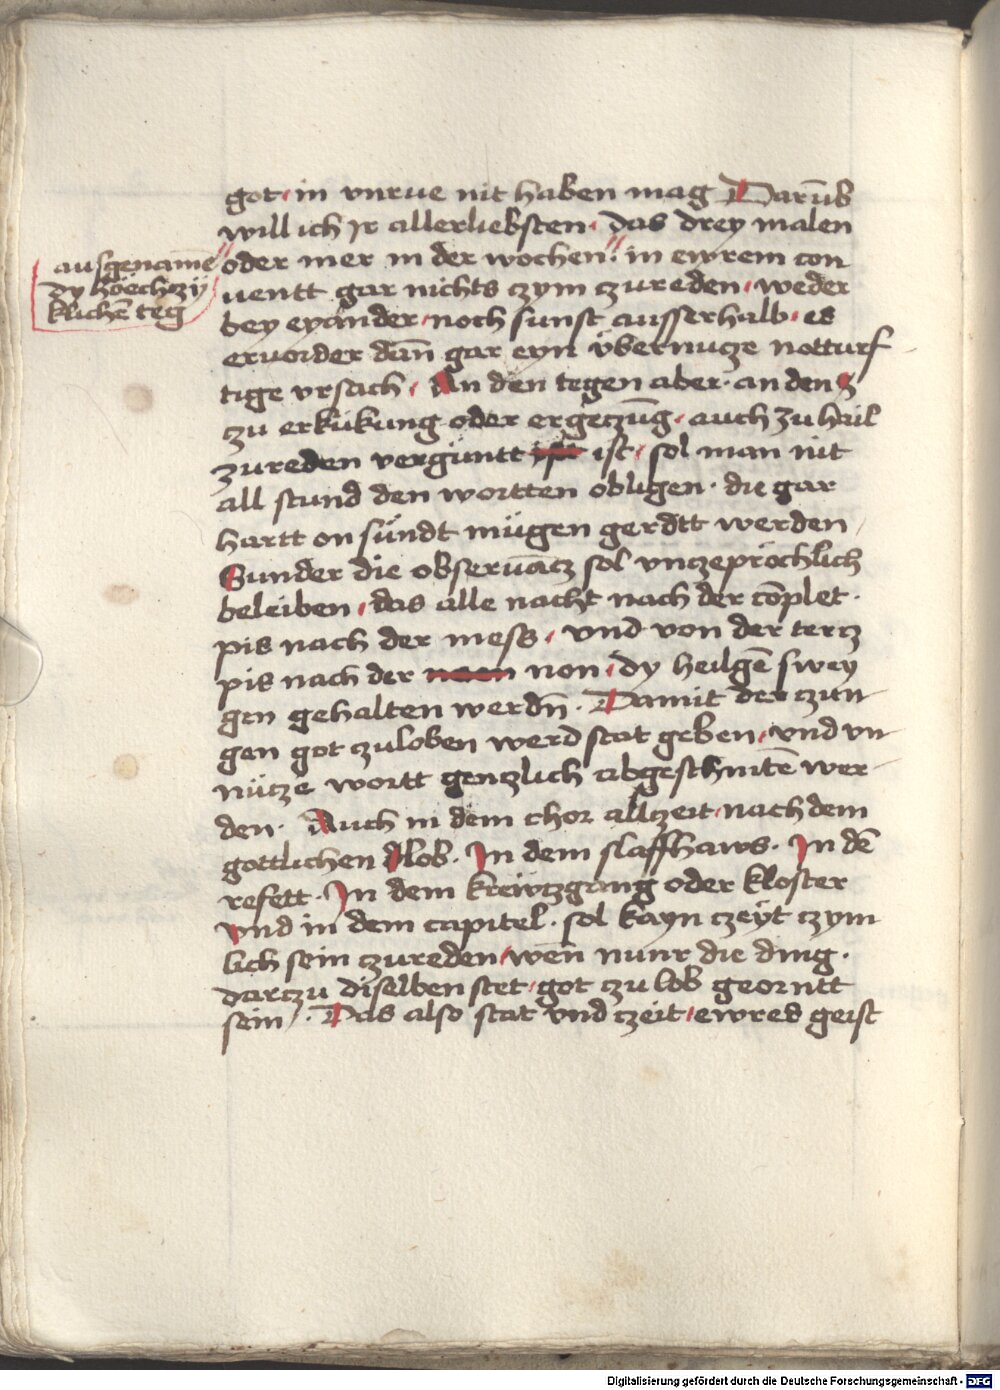 got in vnrue nit haben mag Darūb
will ich jr allerliebsten das drey malen
ausgenāme
dy hoechczÿ
klichē teg
oder mer in der wochen in ewrem con
uentt gar nichts czym czureden weder
bey eyander noch sunst ausserhalb es
eruorder dan̄ gar eyn übernucze notturf
tige vrsach An den tegen aber an den
zu erkükung oder ergeczūg auch zu hail
zureden vergüntt ist sol man nit
all stund den wortten obligen die gar
hartt on sündt mügen gerdtt werden
Sunder die obseruācz sol vnczeprochlich
beleiben das alle nacht nach der cōplet
pis nach der mess vnd von der tercz
pis nach der non dy heilgē swey
gen gehalten werdn̄ Damit der czun
gen got czuloben werd stat geben vnd vn
nücze wortt genczlich abgeschnitē wer
den Auch in dem chor allczeit nach dem
gottlichen lob In dem slaffhaws In dē
refett In dem krewtzgang oder kloster
vnd in dem capitel sol kayn czeÿt czym
lich sein czureden wen̄ nunr die ding
darczu diselben stet got czu lob georntt
sein Das also stat vnd czeit ewres geist
Digitalisierung gefördert durch die Deutsche Forschungsgemeinschaft - DFG